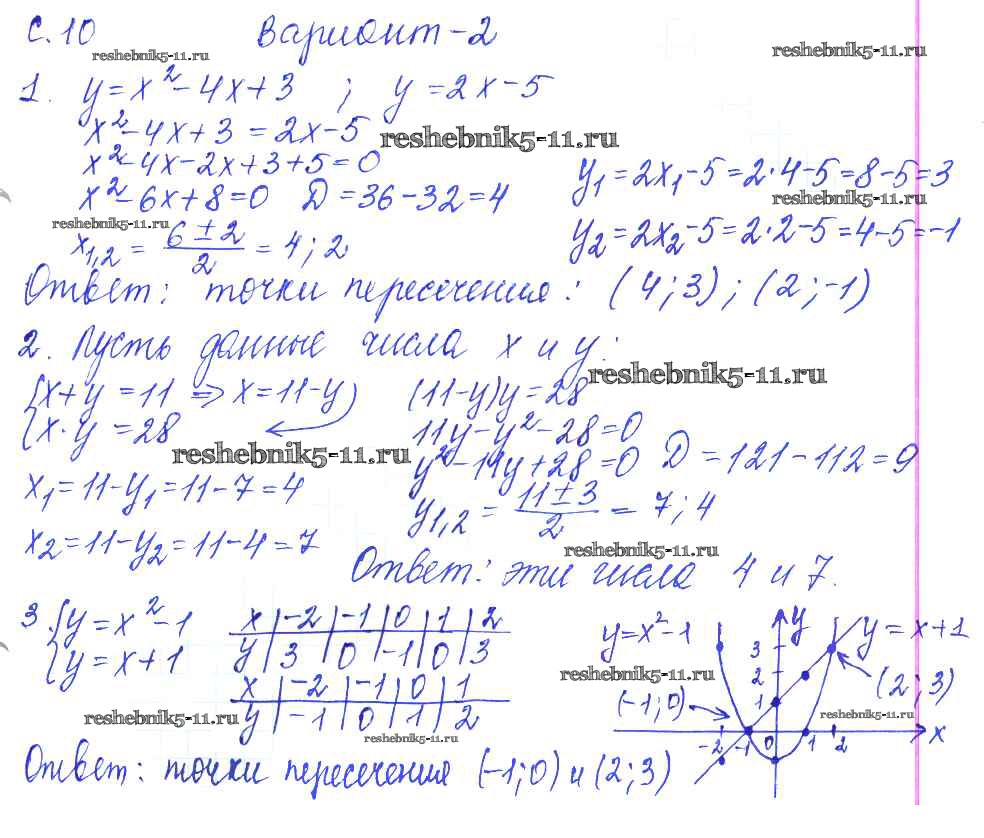 С.10 Вариант-2
reshebnik5-11.ru reshebnik5-11.ru
1. y=x²-4x+3 ; y=2x-5
x²-4x+3=2x-5 reshebnik5-11.ru
x²-4x-2x+3+5=0
y₁=2x₁-5=2·4-5=8-5=3
x²-6x+8=0 D=36-32=4
reshebnik5-11.ru reshebnik5-11.ru
x₁,₂ = (6±2)/2 = 4; 2
y₂=2x₂-5=2·2-5=4-5=-1
Ответ: точки пересечения: (4;3); (2;-1)
2. Пусть данные числа x и y:
reshebnik5-11.ru
{x+y=11 => x=11-y (11-y)y=28
{x·y=28 11y-y²-28=0
reshebnik5-11.ru
y²-11y+28=0 D=121-112=9
x₁=11-y₁=11-7=4
y₁,₂ = (11±3)/2 = 7; 4
x₂=11-y₂=11-4=7
reshebnik5-11.ru
Ответ: эти числа 4 и 7.
3. {y=x²-1
{y=x+1
x | -2 | -1 | 0 | 1 | 2
y | 3 | 0 | -1 | 0 | 3
x | -2 | -1 | 0 | 1
y | -1 | 0 | 1 | 2
reshebnik5-11.ru
reshebnik5-11.ru
y=x²-1 y y=x+1
3
reshebnik5-11.ru
2 (2;3)
(-1;0) 1
reshebnik5-11.ru
-2 -1 0 1 2 x
Ответ: точки пересечения (-1;0) и (2;3)